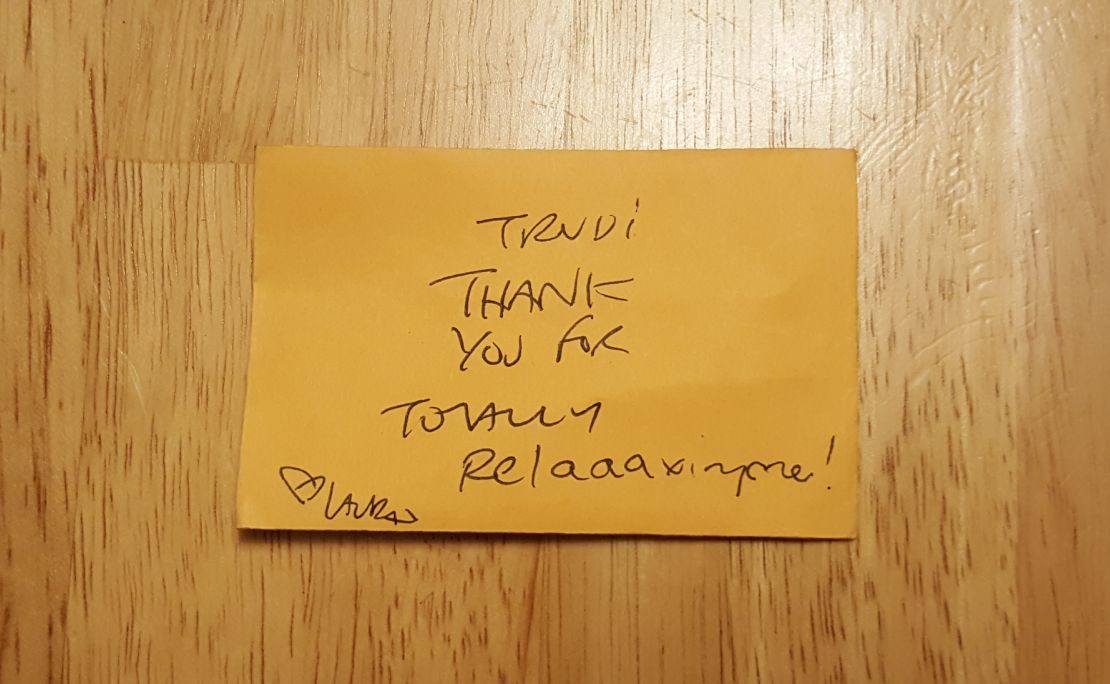 TRUDi
THANK
YOU FOR
TOTALLY
Relaaaxing me!
♡ LAURA